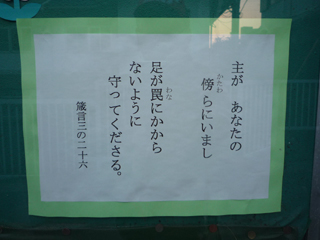 主が　あなたの
傍らにいまし
足が罠にかから
ないように
守ってくださる。
箴言三の二十六